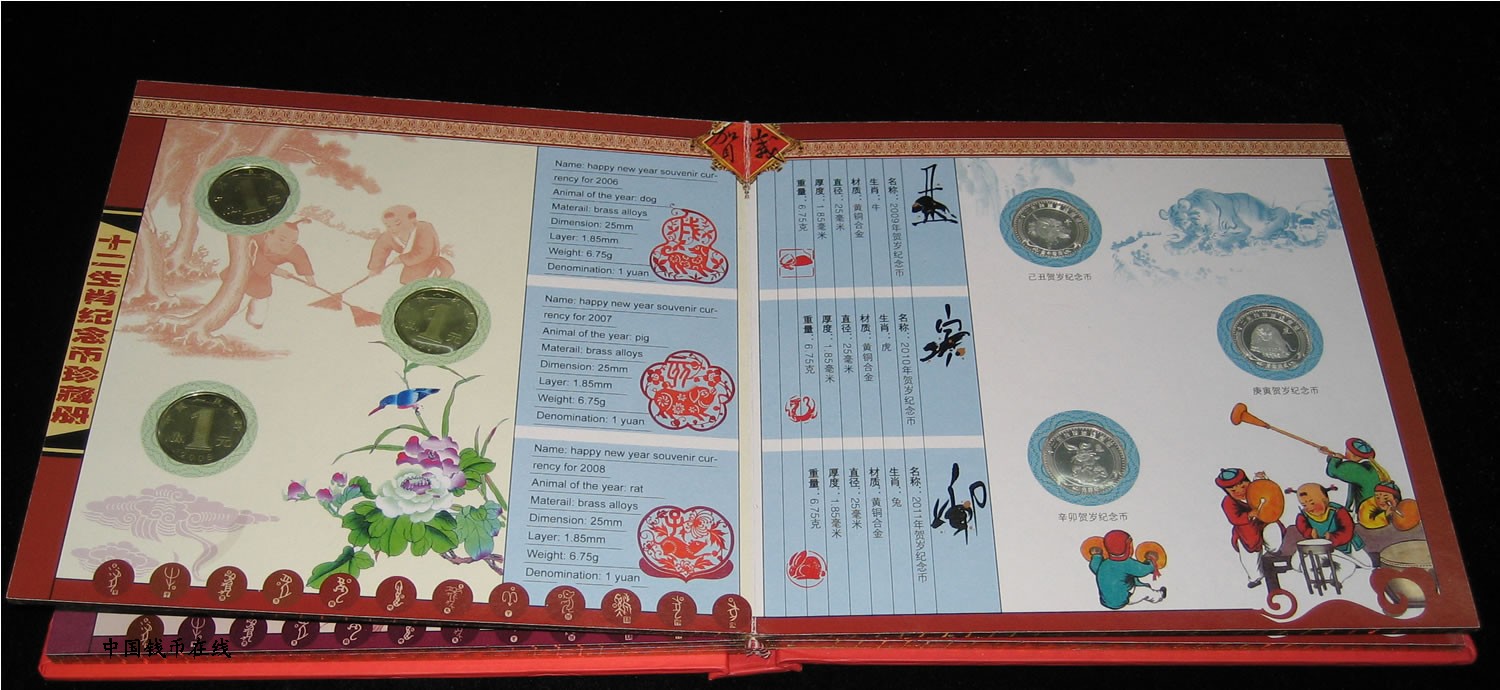 十二生肖纪念币珍藏
1
2006
1
1
元
2008
Name: happy new year souvenir cur-
rency for 2006
Animal of the year: dog
Materail: brass alloys
Dimension: 25mm
Layer: 1.85mm
Weight: 6.75g
Denomination: 1 yuan
Name: happy new year souvenir cur-
rency for 2007
Animal of the year: pig
Materail: brass alloys
Dimension: 25mm
Layer: 1.85mm
Weight: 6.75g
Denomination: 1 yuan
Name: happy new year souvenir cur-
rency for 2008
Animal of the year: rat
Materail: brass alloys
Dimension: 25mm
Layer: 1.85mm
Weight: 6.75g
Denomination: 1 yuan
贺岁
丑
名称：2009年贺岁纪念币
生肖：牛
材质：黄铜合金
直径：25毫米
厚度：1.85毫米
重量：6.75克
寅
名称：2010年贺岁纪念币
生肖：虎
材质：黄铜合金
直径：25毫米
厚度：1.85毫米
重量：6.75克
卯
名称：2011年贺岁纪念币
生肖：兔
材质：黄铜合金
直径：25毫米
厚度：1.85毫米
重量：6.75克
己丑贺岁纪念币
庚寅贺岁纪念币
辛卯贺岁纪念币
中国钱币在线